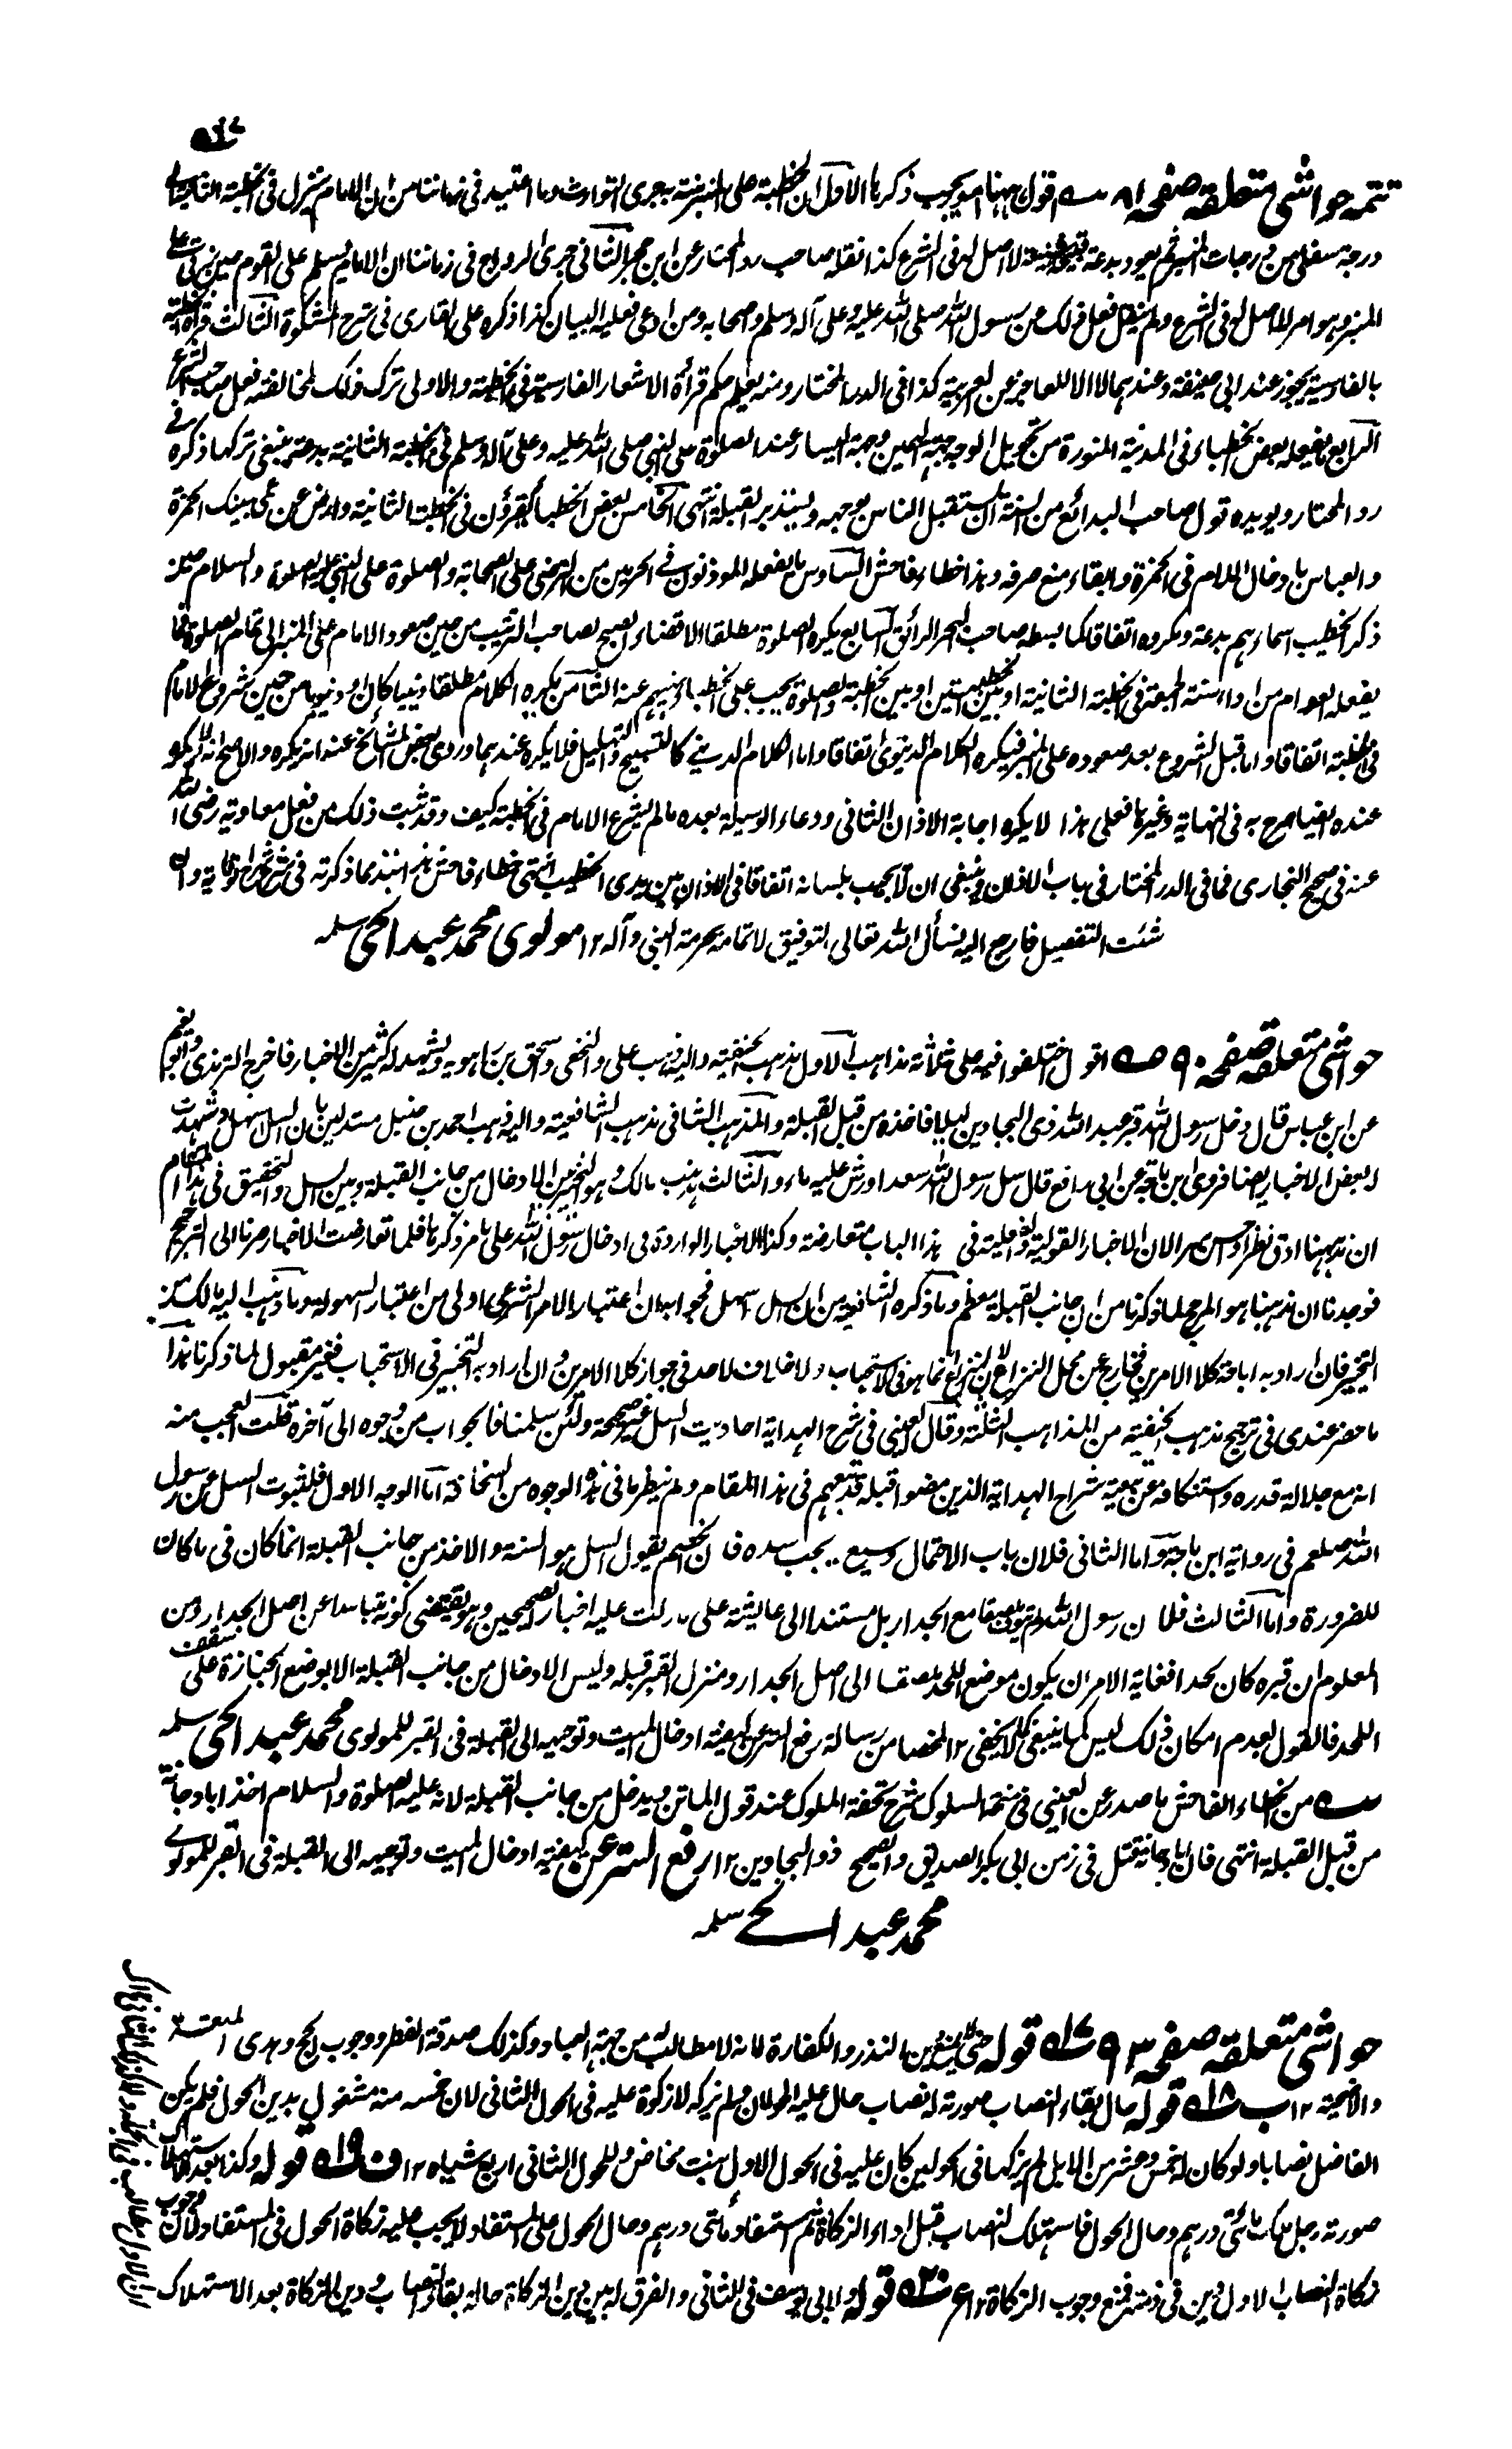 تتمه حواشی متعلقه صفحه ۸۱ اقول ههنا امور يجب ذكرها الاول ان الخطبة على المنبر سنة به جرى التوارث وما اعتيد في زماننا من ان الامام ينزل في الخطبة الثانية الى
درجة سفلى من درجات المنبر ثم يعود بدعة قبيحة شنيعة لا اصل له في الشرع كذا نقله صاحب رد المحتار عن ابن حجر الثاني جرى الرواج في زماننا ان الامام يسلم على القوم حين رقى على
المنبر وهو امر لا اصل له في الشرع ولم ينقل فعل ذلك من رسول الله صلى الله عليه وعلى آله وسلم وصحابه ومن ادعى فعليه البيان كذا ذكره على القارى في شرح المشكوة الثالث قرأة الخطبة
بالفارسية يجوز عند ابى حنيفة وعندهما لا الا للعاجز عن العربية كذا في الدر المختار ومنه يعلم حكم قرأة الاشعار الفارسية في الخطبة والاولى ترك ذلك لمخالفته فعل صاحب الشرع
الرابع ما يفعله بعض الخطباء في المدينة المنورة من تحويل الوجه جهة اليمين وجهة اليسار عند الصلوة على النبى صلى الله عليه وعلى آله وسلم في الخطبة الثانية بدعة ينبغي تركها ذكره في
رد المحتار ويويده قول صاحب البدائع من السنة ان يستقبل الناس بوجهه ويستدبر القبلة انتهى الخامس بعض الخطبا يقرؤن في الخطبة الثانية وارض عن عمى نبيك الحمزة
والعباس بادخال اللام في الحمزة وابقاء منع صرفه وهذا خطاء فاحش السادس ما يفعله الموذنون في الحرمين من الترضى على الصحابة والصلوة على النبى عليه الصلوة والسلام حين
ذكر الخطيب اسماءهم بدعة ومكروه اتفاقا كما بسطه صاحب البحر الرائق السابع يكره الصلوة مطلقا الا قضاء الصبح لصاحب الترتيب من حين صعود الامام على المنبر الى تمام الصلوة فما
يفعله العوام من اداء سنة الجمعة في الخطبة الثانية او بين الخطبتين او بين الخطبة والصلوة يجب على الخطباء نهيهم عنه الثامن يكره الكلام مطلقا دينيا كان او دنيويا من حين شروع الامام
في الخطبة اتفاقا واما قبل الشروع بعد صعوده على المنبر فيكره الكلام الدنيوى اتفاقا واما الكلام الديني كالتسبيح والتهليل فلا يكره عندهما وروى بعض المشائخ عنه انه يكره والاصح انه لا يكره
عنده ايضا صرح به في النهاية وغيرها فعلى هذا لا يكره اجابة الاذان الثاني ودعاء الوسيلة بعده ما لم يشرع الامام في الخطبة كيف وقد ثبت ذلك من فعل معاوية رضى الله
عنه في صحيح البخارى فما في الدر المختار في باب الاذان ينبغي ان لا يجيب بلسانه اتفاقا في الاذان بين يدى الخطيب انتهى خطاء فاحش هذا نبذ مما ذكرته في شرح شرح الوقاية وان
شئت التفصيل فارجع اليه نسأل الله تعالى التوفيق لاتمامه بحرمة النبى وآله ۱۲ مولوى محمد عبد الحى سلمه
حواشى متعلقه صفحه ۹۰ اقول اختلفوا فيه على ثلاثة مذاهب الاول مذهب الحنفية واليه ذهب على والنخعى واسحق بن راهويه ويشهد له كثير من الاخبار فاخرج الترمذى وابو نعيم
عن ابن عباس قال دخل رسول الله قبر عبد الله ذى البجادين ليلا فاخذه من قبل القبلة والمذهب الثاني مذهب الشافعية واليه ذهب احمد بن حنبل مستدلين بان السل اسهل وشهدت
لبعض الاخبار ايضا فروى ابن ماجة عن ابى رافع قال سل رسول الله سعدا ورش عليه ماء والثالث مذهب مالك وهو التخيير بين الادخال من جانب القبلة وبين السل والتحقيق في هذا المقام
ان مذهبنا ادق نظرا واحسن سرا لان الاخبار القولية والفعلية في هذا الباب متعارضة وكذا الاخبار الواردة في ادخال رسول الله على ما مر ذكرها فلما تعارضت الاخبار صرنا الى الترجيح
فوجدنا ان مذهبنا هو المرجح لما ذكرنا من ان جانب القبلة معظم وما ذكره الشافعية من ان السل اسهل فجوابه ان اعتبار الامر الشرعى اولى من اعتبار السهولة وما ذهب اليه مالك من
التخيير فان اراد به اباحة كلا الامرين فخارج عن محل النزاع لان النزاع انما هو في الاستحباب ولا خلاف لاحد في جواز كلا الامرين وان اراد به التخيير في الاستحباب فغير مقبول لما ذكرنا هذا
ما حضر عندى في ترجيح مذهب الحنفية من المذاهب الثلثة وقال العينى في شرح الهداية احاديث السل غير صحيحة ولئن سلمنا فالجواب من وجوه الى آخره قلت العجب منه
انه مع جلالة قدره واستنكافه عن تبعية شراح الهداية الذين مضوا قبله قد تبعهم في هذا المقام ولم ينظر ما في هذه الوجوه من السخافة اما الوجه الاول فلثبوت السل عن رسول
الله صلعم في رواية ابن ماجة واما الثاني فلان باب الاحتمال وسيع يجب سده فان الخصم يقول السل هو السنة والاخذ من جانب القبلة انما كان في ما كان
للضرورة واما الثالث فلان رسول الله لم يتوف ملصقا مع الجدار بل مستندا الى عائشة على ما دلت عليه اخبار الصحيحين وهو يقتضى كونه متباعدا عن اصل الجدار ومن
المعلوم ان قبره كان لحدا فغاية الامر ان يكون موضع اللحد ملصقا الى اصل الجدار ومنزل القبر قبله وليس الادخال من جانب القبلة الا بوضع الجنازة على سقف
اللحد فالقول بعدم امكان ذلك ليس كما ينبغي كما لا يخفى ۱۲ ملخصا من رسالة رفع الستر عن كيفية ادخال الميت وتوجيهه الى القبلة في القبر للمولوى محمد عبد الحى سلمه
من الخطاء الفاحش ما صدر عن العينى في منحة السلوك شرح تحفة الملوك عند قول الماتن ويدخل من جانب القبلة لانه عليه الصلوة والسلام اخذ ابا دجانة
من قبل القبلة انتهى فان ابا دجانة قتل في زمن ابى بكر الصديق والصحيح ذو البجادين ۱۲ رفع الستر عن كيفية ادخال الميت وتوجيهه الى القبلة في القبر للمولوى
محمد عبد الحى سلمه
حواشى متعلقه صفحه ۹۳ قوله حتى لا يمنع دين النذر والكفارة لانه لا مطالب له من جهة العباد وكذلك صدقة الفطر ووجوب الحج وهدى المتعة
والاضحية ۱۲ ب قوله حال بقاء النصاب صورته له نصاب حال عليه الحولان ولم يزكه لا زكوة عليه في الحول الثاني لان خمسه منه مشغول بدين الحول فلم يكن
الفاضل نصابا ولو كان له خمس وعشر من الابل لم يزكها في الحولين كان عليه في الحول الاول بنت مخاض وللحول الثاني اربع شياه ۱۲ ف قوله وكذا بعد الاستهلاك
صورته رجل ملك مائتى درهم وحال الحول فاستهلك النصاب قبل اداء الزكاة ثم استفاد مائتى درهم وحال الحول على المستفاد لا يجب عليه زكاة الحول في المستفاد لان وجوب
زكاة النصاب الاول دين في ذمته فمنع وجوب الزكاة ۱۲ ع قوله ولابى يوسف في الثاني والفرق له بين دين الزكاة حالة بقاء النصاب ودين الزكاة بعد الاستهلاك